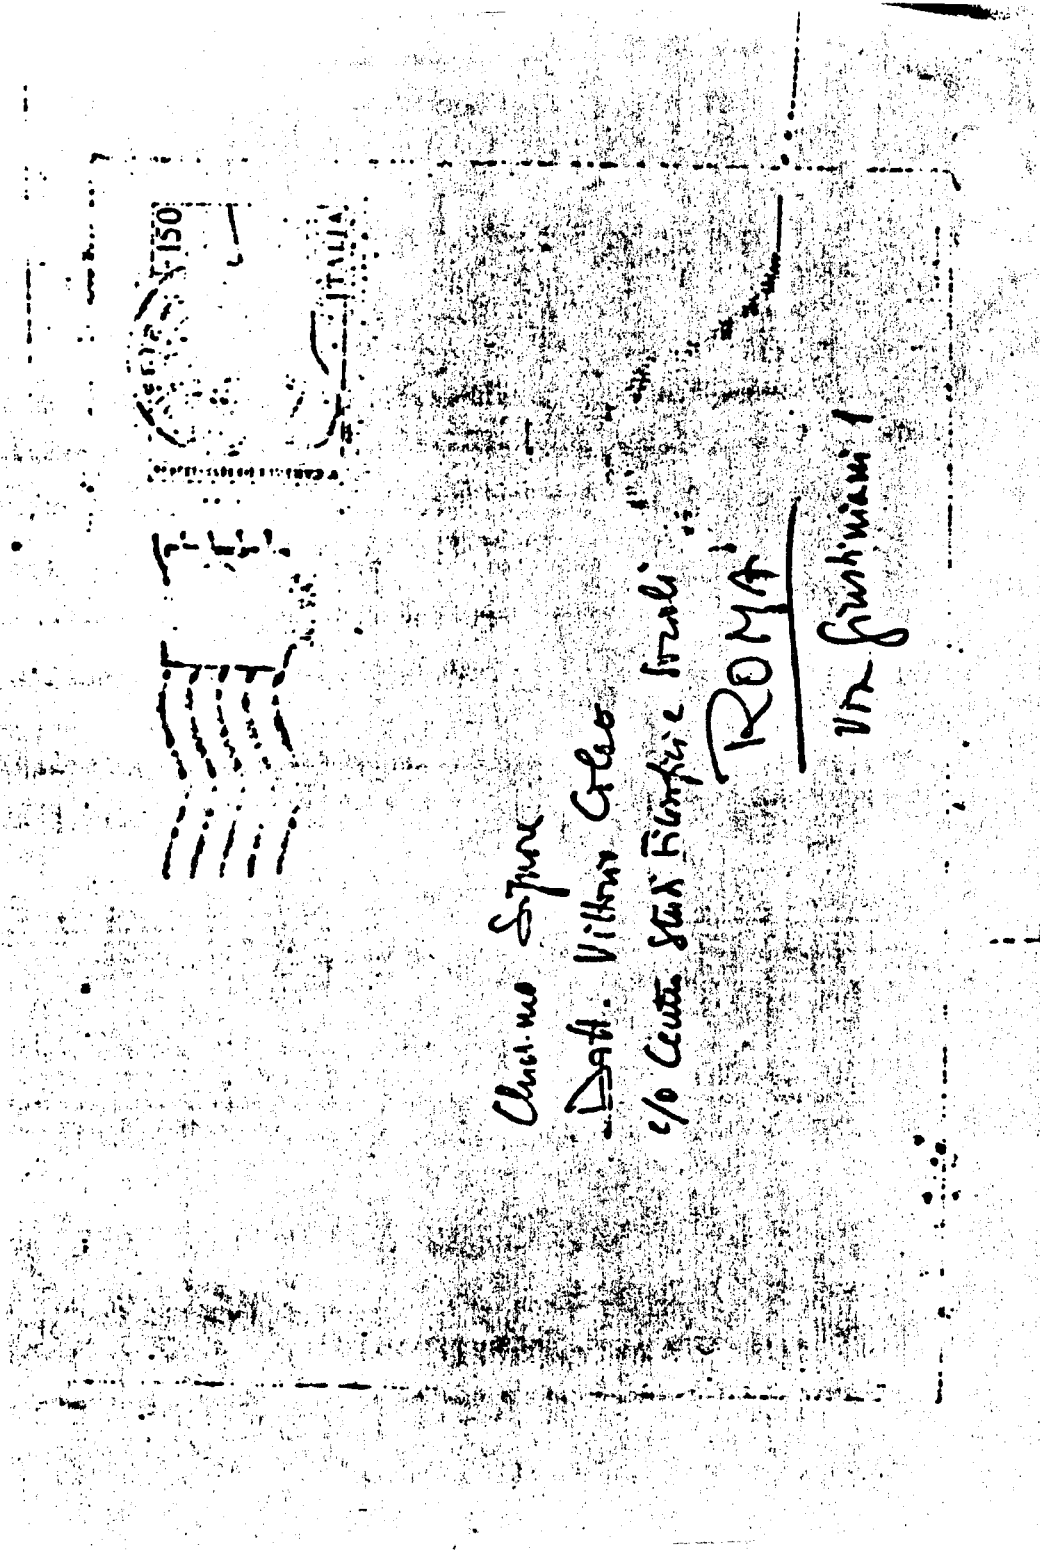 150
ITALIA
Chiar.mo Signore
Dott. Vittorio
c/o Centro Studi Filosofici e Sociali
ROMA
Via Giustiniani 1